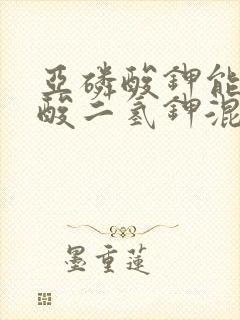 亚磷酸钾能
酸二氢钾混
墨重莲